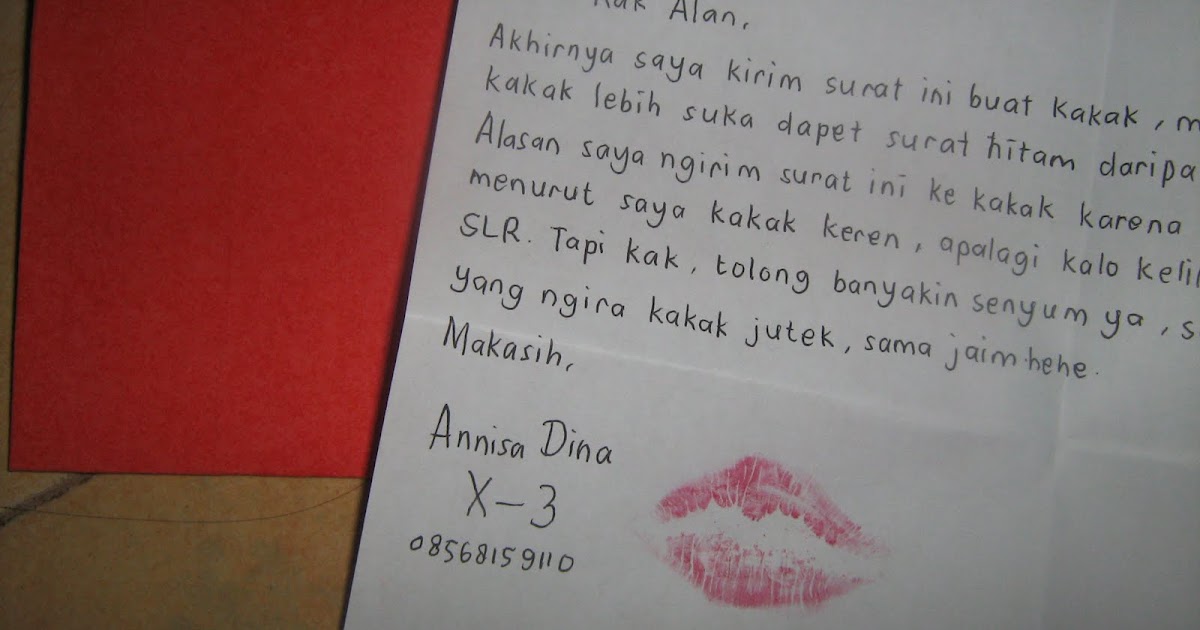 Kak Alan,
Akhirnya saya kirim surat ini buat kakak, m
kakak lebih suka dapet surat hitam daripa
Alasan saya ngirim surat ini ke kakak karena
menurut saya kakak keren, apalagi kalo kelih
SLR. Tapi kak, tolong banyakin senyum ya, s
yang ngira kakak jutek, sama jaim hehe.
Makasih,
Annisa Dina
X-3
08568159110